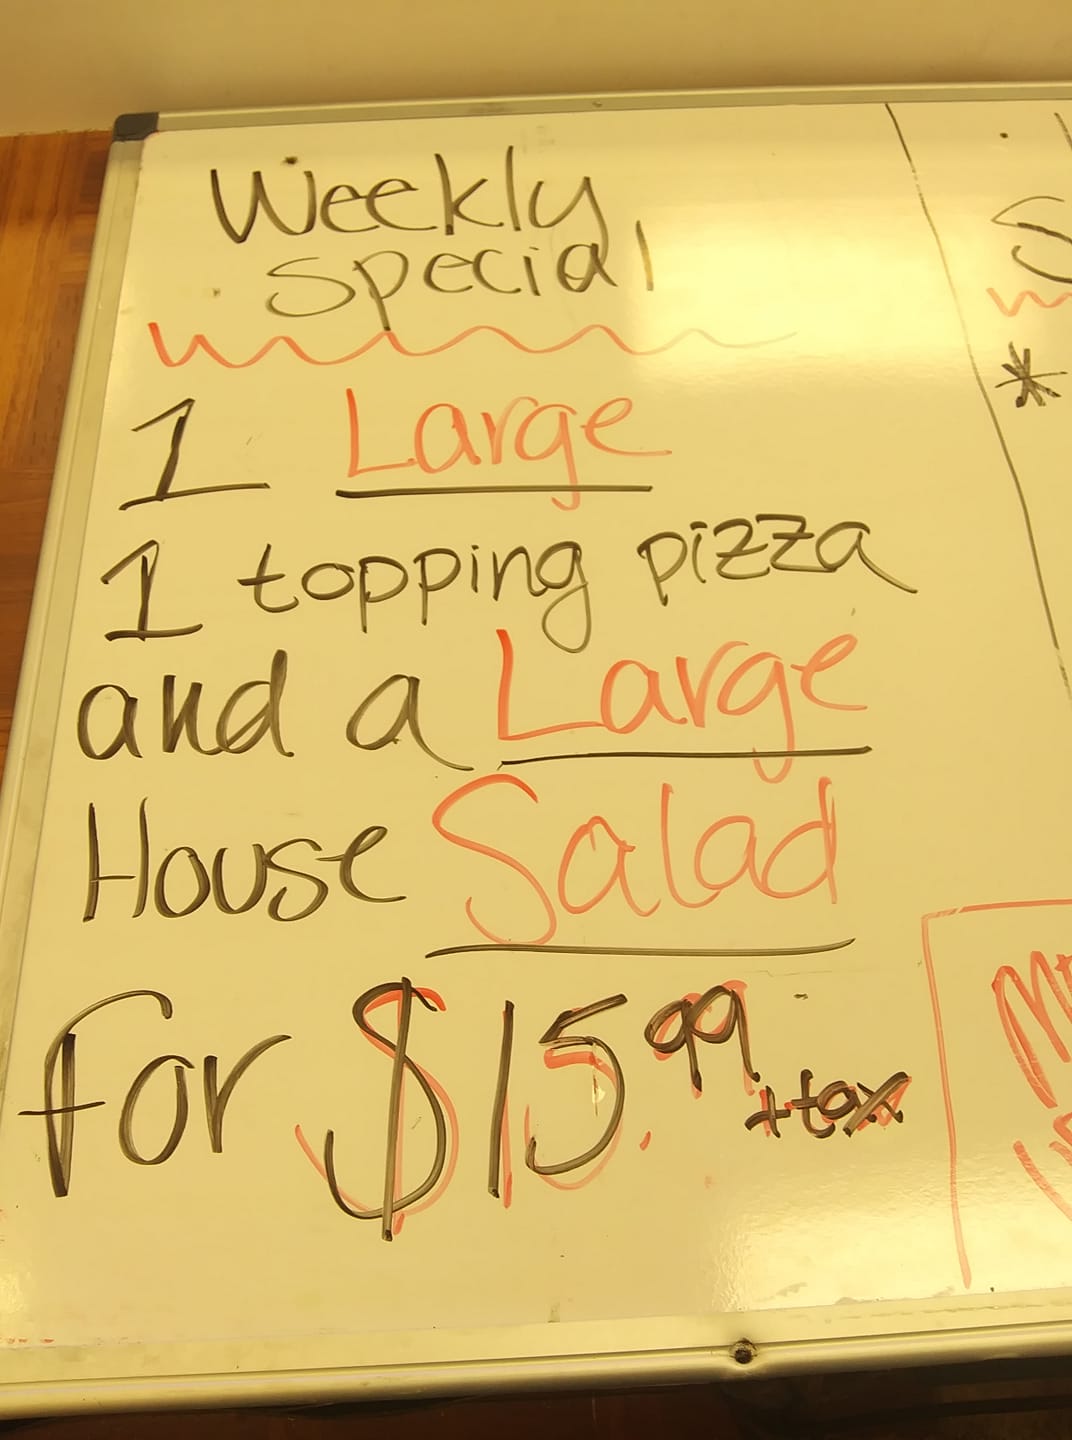 Weekly
special
1 Large
1 topping pizza
and a Large
House Salad
for $15.99 +tax